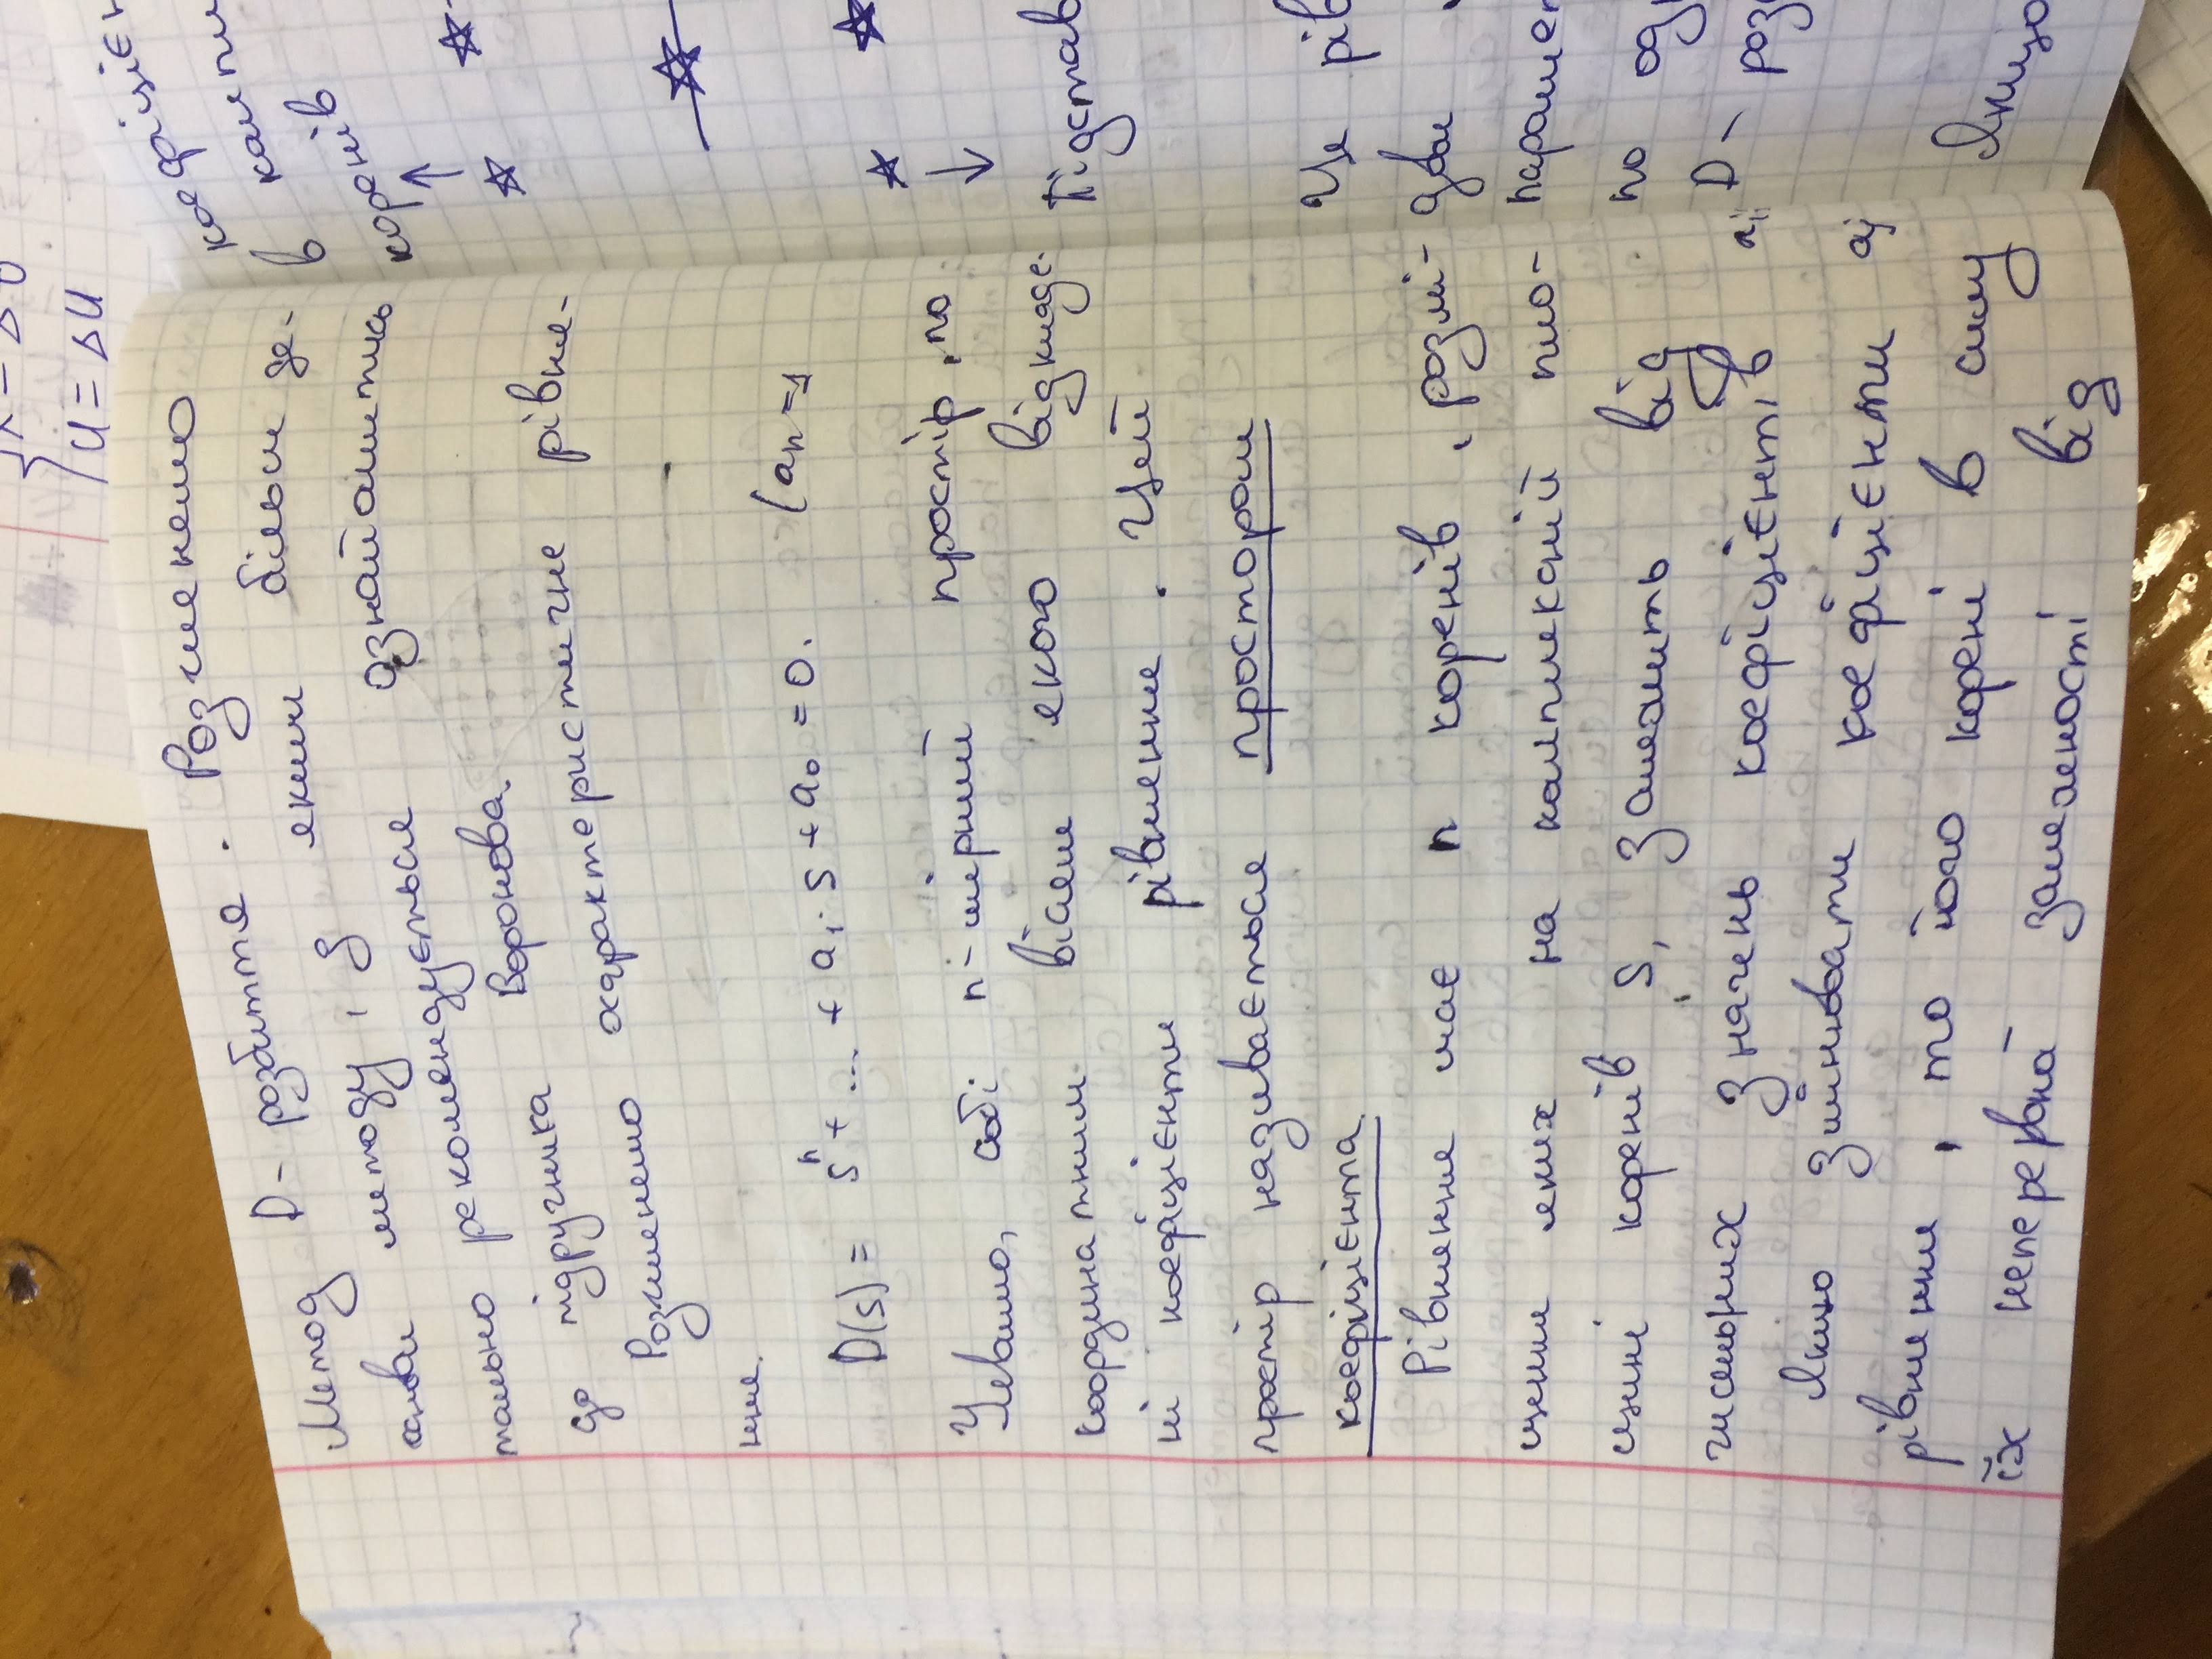 Метод D- розбиття. Розглянемо
основи методу, з якими більш де-
тально рекомендується ознайомитись
до підручника Воронова.
Розглянемо характеристичне рівня-
ння.
D(s) = sⁿ + ... + a₁·s + a₀ = 0. (aₙ=1
Уявимо, собі n-мірний простір, по
координатним вісям якого відкладе-
ні коефіцієнти рівняння. Цей
простір називається простором
коефіцієнта.
Рівняння має n коренів, розмі-
щення яких на комплексній пло-
щині коренів s, залежить від
чисельних значень коефіцієнтів
Якщо змінювати коефіцієнти aj
рівняння, то його корені в силу
їх неперервної залежності від
U = ΔU
коефіцієн
в
коренів
Підстав
Це рів
двом
парамет
по од
D- роз
Якщо